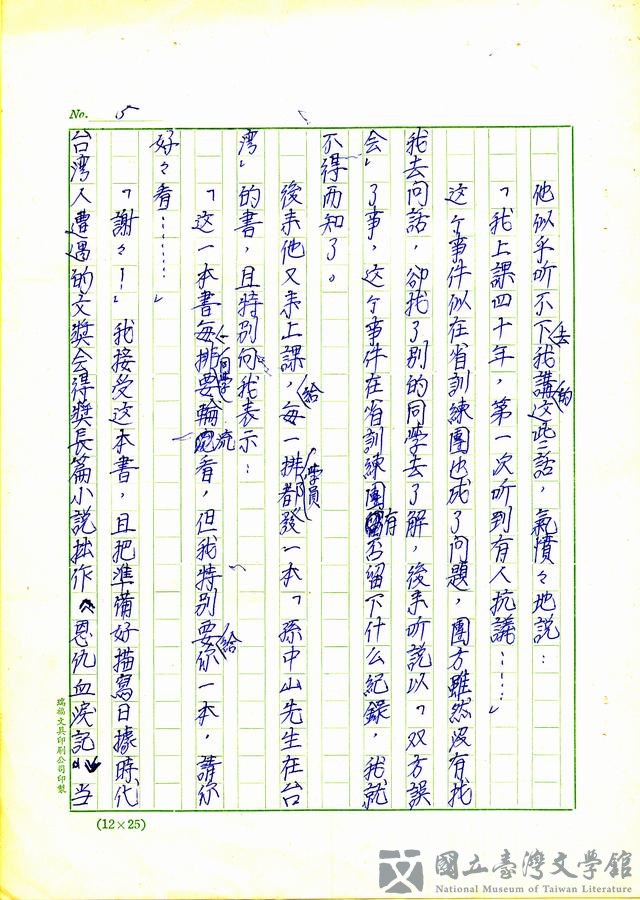 No. 5
他似乎听不下去我講的这些話，氣憤々地説：
「我上課四十年，第一次听到有人抗議……」
这个事件似在省訓練團也成了问題，團方雖然没有找
我去问話，卻找了別的同學去了解，後来听説以「双方誤
会」了事，这个事件在省訓練團有否留下什么紀錄，我就
不得而知了。
後来他又来上課，給每一排學員都發一本「孫中山先生在台
湾」的書，且特別向我表示：
「这一本書每排同學要輪流看，但我特別要給你一本，請你
好々看……」
「謝々！」我接受这本書，且把準備好描寫日據時代
台湾人遭遇的文奬会得奬長篇小説拙作《恩仇血淚記》当
瑞福文具印刷公司印製
(12×25)
國立臺灣文學館
National Museum of Taiwan Literature